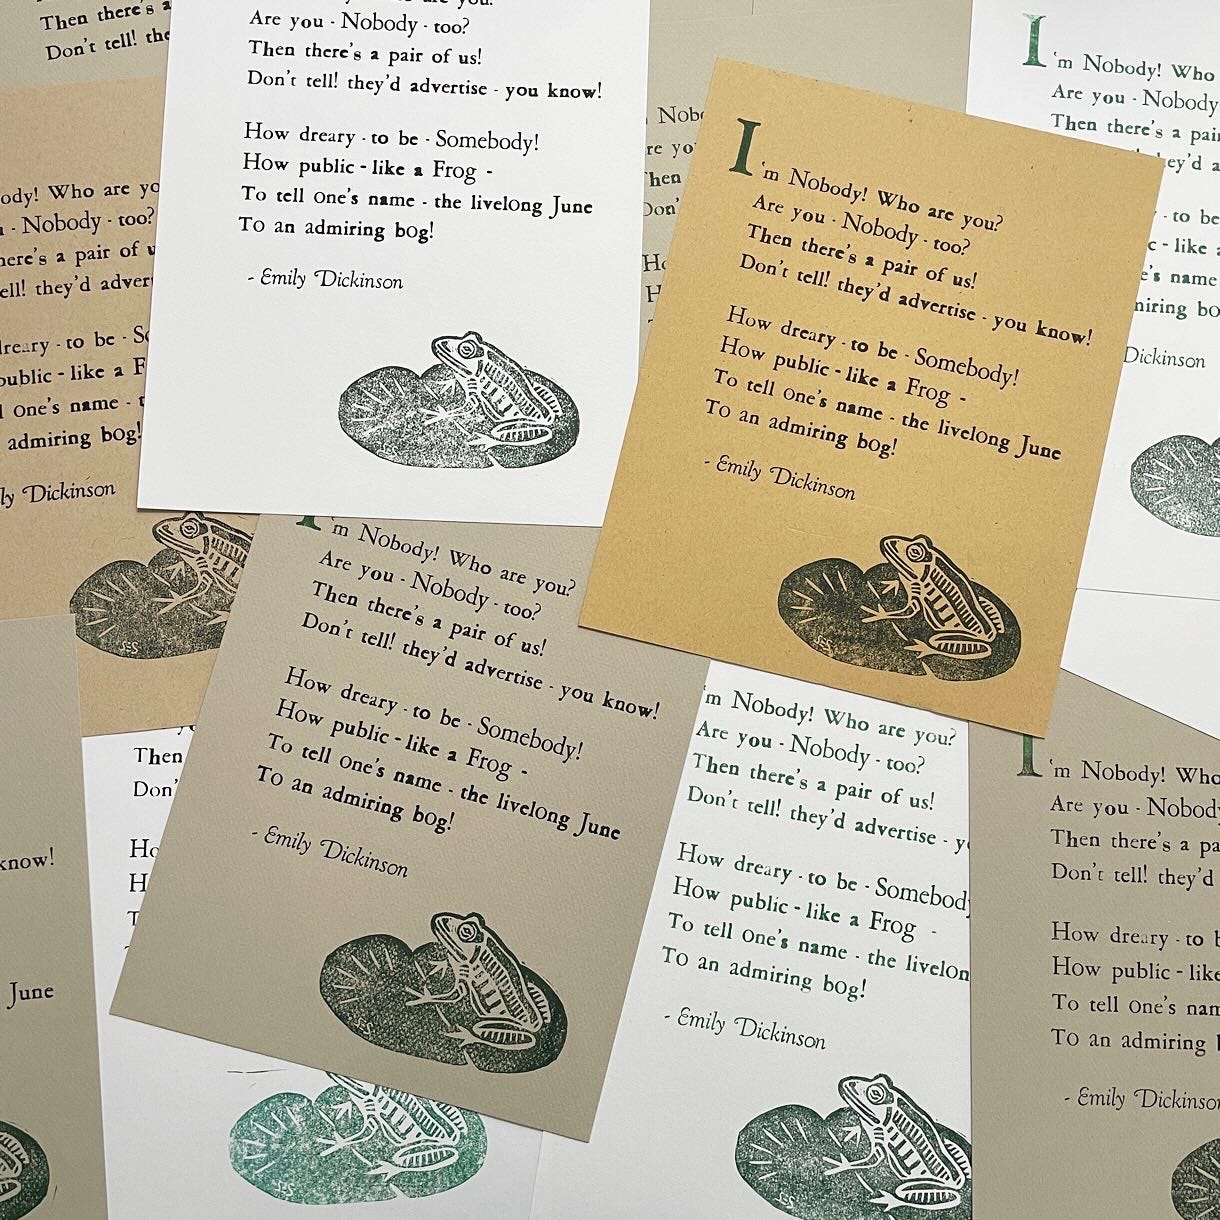 Then there's a
Don't tell! the
Are you - Nobody - too?
Then there's a pair of us!
Don't tell! they'd advertise - you know!
How dreary - to be - Somebody!
How public - like a Frog -
To tell one's name - the livelong June
To an admiring bog!
- Emily Dickinson
I'm Nobody! Who
Are you - Nobody
Then there's a pai
to be
like
name
Dickinson
I'm Nobody! Who are you?
Are you - Nobody - too?
Then there's a pair of us!
Don't tell! they'd advertise - you know!
How dreary - to be - Somebody!
How public - like a Frog -
To tell one's name - the livelong June
To an admiring bog!
- Emily Dickinson
ody! Who are yo
- Nobody - too?
here's a pair of u
ell! they'd adver
dreary - to be - So
public - like a F
l one's name - t
admiring bog!
ly Dickinson
I'm Nobody! Who are you?
Are you - Nobody - too?
Then there's a pair of us!
Don't tell! they'd advertise - you know!
How dreary - to be - Somebody!
How public - like a Frog -
To tell one's name - the livelong June
To an admiring bog!
- Emily Dickinson
'm Nobody! Who are you?
Are you - Nobody - too?
Then there's a pair of us!
Don't tell! they'd advertise - y
How dreary - to be - Somebody
How public - like a Frog -
To tell one's name - the livelon
To an admiring bog!
- Emily Dickinson
I'm Nobody! Who
Are you - Nobody
Then there's a pa
Don't tell! they'd
How dreary - to b
How public - like
To tell one's nam
To an admiring b
- Emily Dickinson
know!
June
Then
Don'
Ho
H